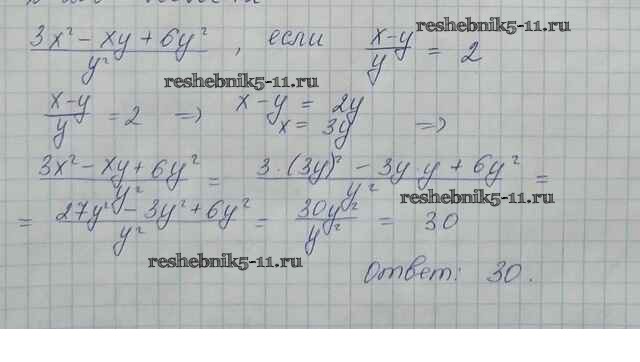 (3x² - xy + 6y²)/y² , если (x-y)/y = 2
reshebnik5-11.ru
reshebnik5-11.ru
(x-y)/y = 2 => x - y = 2y
x = 3y =>
(3x² - xy + 6y²)/y² = (3·(3y)² - 3y·y + 6y²)/y² =
reshebnik5-11.ru
= (27y² - 3y² + 6y²)/y² = 30y²/y² = 30
reshebnik5-11.ru
Ответ: 30.